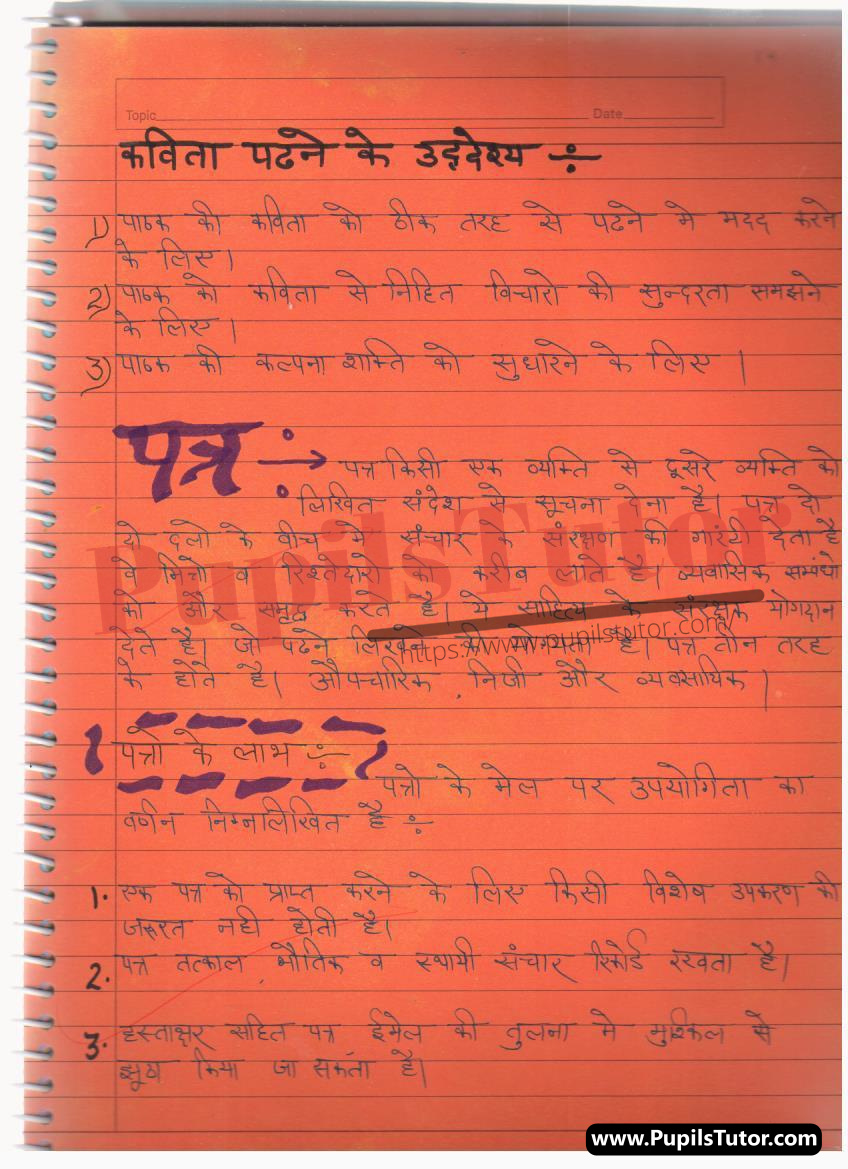 Topic Date
कविता पढने के उद्देश्य ÷
1) पाठक की कविता को ठीक तरह से पढने मे मदद करने
के लिए।
2) पाठक को कविता से निहित विचारो की सुन्दरता समझने
के लिए।
3) पाठक की कल्पना शक्ति को सुधारने के लिए।
पत्र ÷→ पत्र किसी एक व्यक्ति से दूसरे व्यक्ति को
लिखित संदेश से सूचना देना है। पत्र दो
यो दलो के बीच मे संचार के संरक्षण की गारंटी देता है
वे मित्रो व रिश्तेदारो को करीब लाते है। व्यवासिक सम्पंधो
को और समृद्ध करते है। ये साहित्य के संरक्षक योगदान
देते है। जो पढने लिखने की योग्यता है। पत्र तीन तरह
के होते है। औपचारिक, निजी और व्यवसायिक।
पत्रो के लाभ ÷
पत्रो के मेल पर उपयोगिता का
वर्णन निम्नलिखित है ÷
1. एक पत्र को प्राप्त करने के लिए किसी विशेष उपकरण की
जरूरत नही होती है।
2. पत्र तत्काल, भौतिक व स्थायी संचार रिकोर्ड रखता है।
3. हस्ताक्षर सहित पत्र ईमेल की तुलना मे मुश्किल से
झूठा किया जा सकता है।
PupilsTutor
https://www.pupilstutor.com/
www.PupilsTutor.com